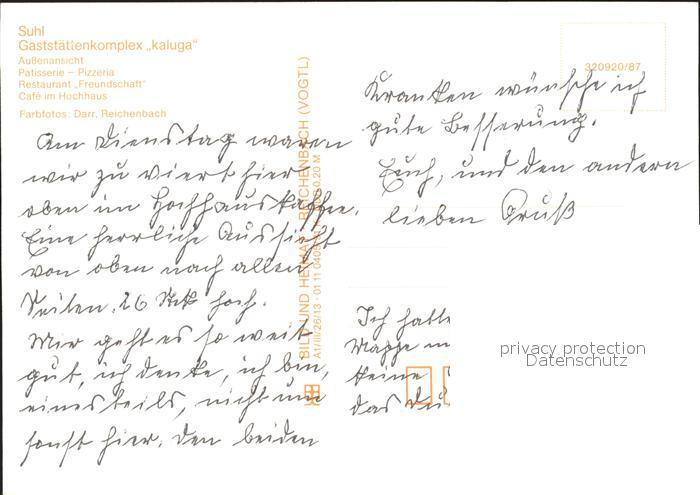 Suhl
Gaststättenkomplex „kaluga"
Außenansicht
Patisserie – Pizzeria
Restaurant „Freundschaft"
Café im Hochhaus
Farbfotos: Darr, Reichenbach
Am Dienstag waren
wir zu viert hier
oben im Hochhauskaffee.
Eine herrliche Aussicht
von oben nach allen
Seiten. 26 Stck hoch.
Mir geht es so weit
gut, ich denke, ich bin,
einesteils, nicht um
sonst hier. Den beiden
BILD UND HEIMAT REICHENBACH (VOGTL)
A1/III/26/13 · 01 11 0409
0,20 M
320920/87
Kranken wünsche ich
gute Besserung.
Euch, und den andern
lieben Gruß
Ich hatte
Mappe
keine
das du
privacy protection
Datenschutz